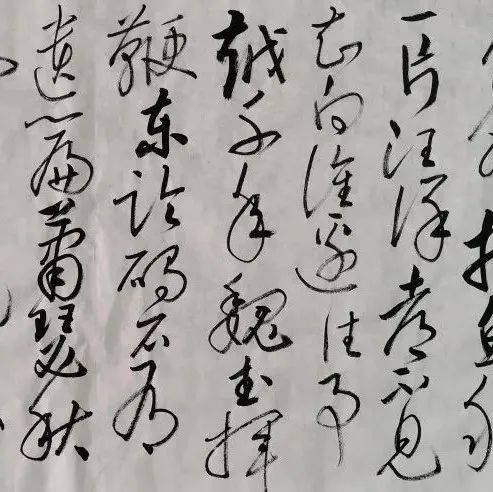 打鱼
一片汪洋都不见
知向谁边往事
越千年魏武挥
鞭东临碣石有
遗篇萧瑟秋